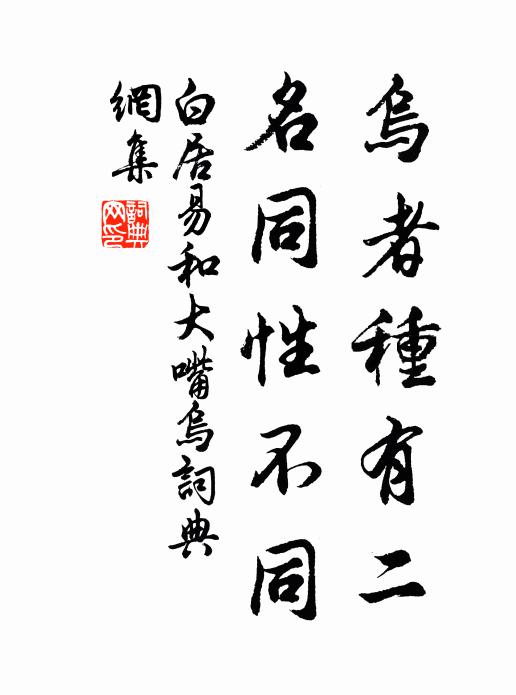 烏者種有二
名同性不同
白居易和大嘴烏詞典
網集
詞典網印